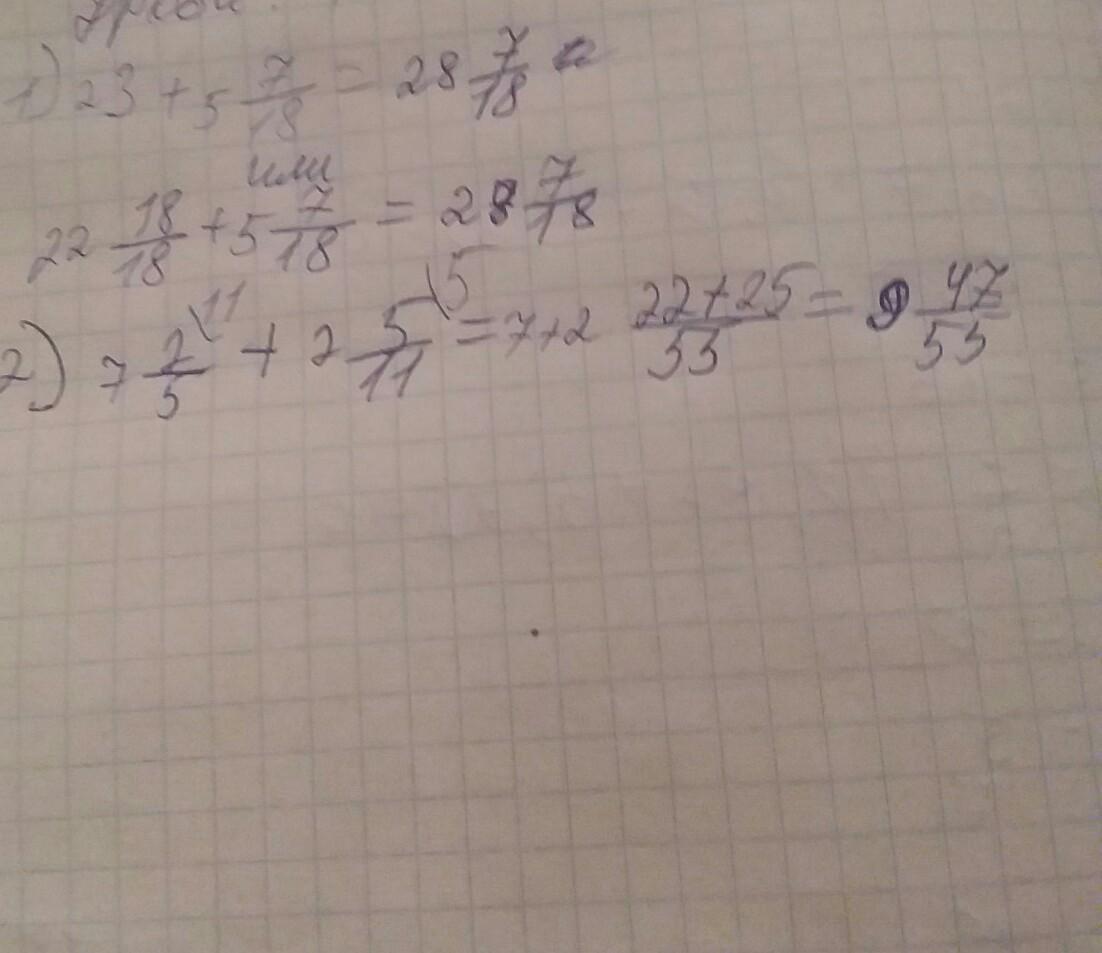 1) 23 + 5 7/18 = 28 7/18
или
22 18/18 + 5 7/18 = 28 7/18
2) 7 2\11/5 + 2 5\5/11 = 7+2 22+25/55 = 9 47/55